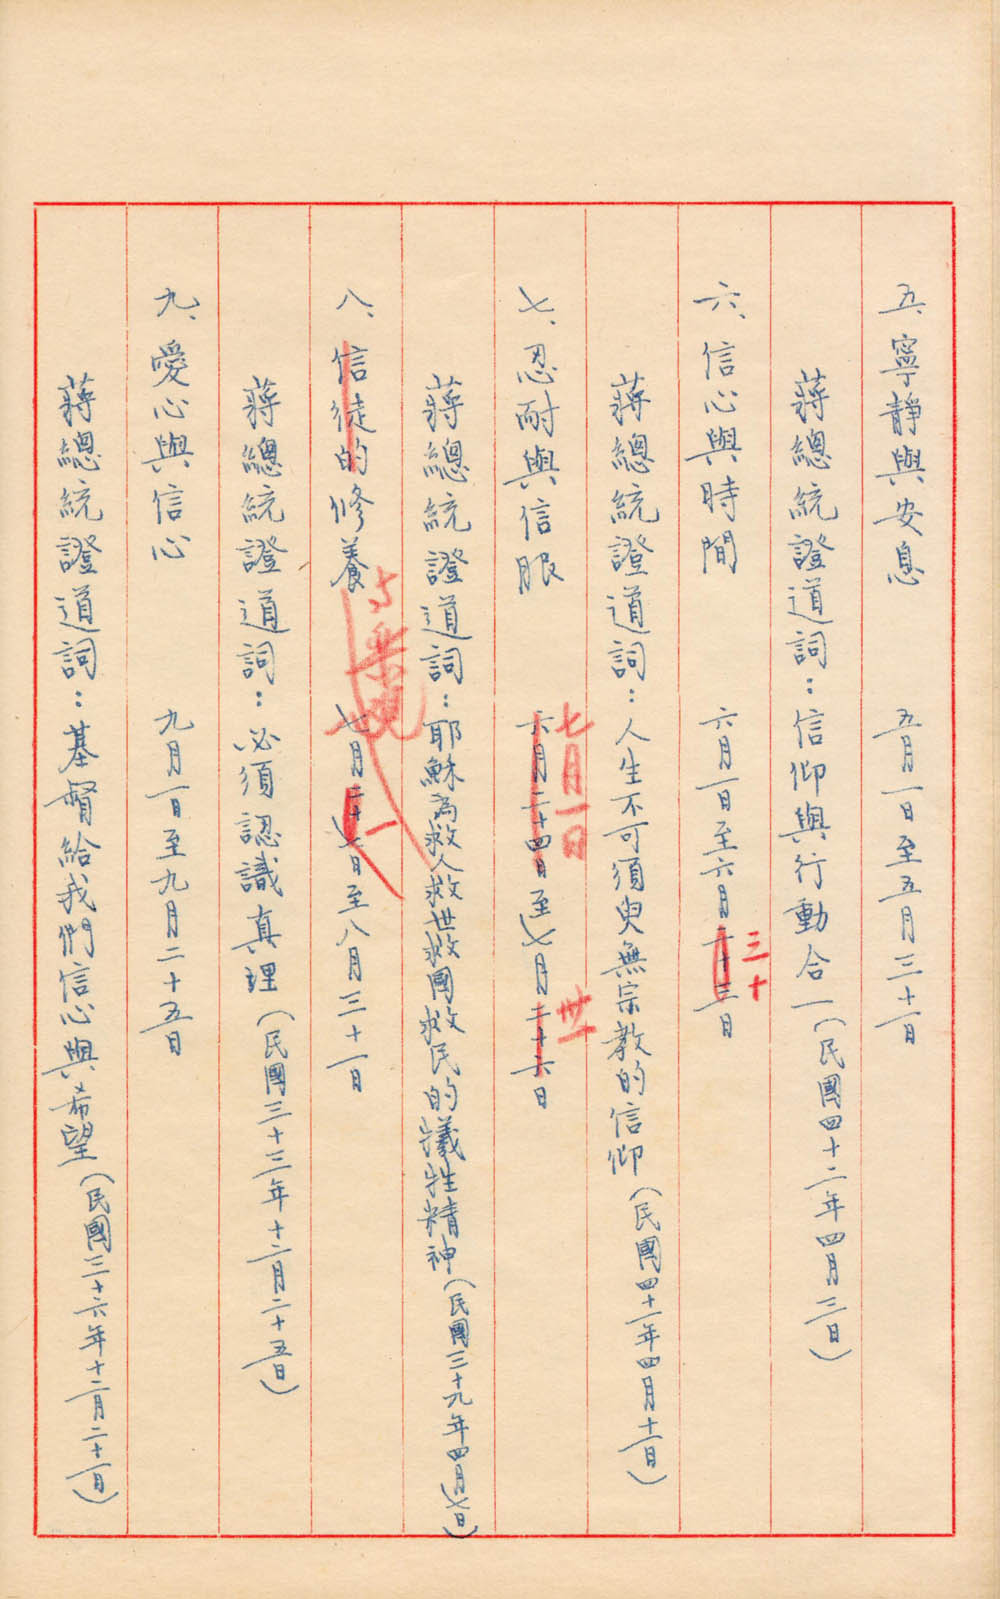 五、寧靜與安息 五月一日至五月三十一日
蔣總統證道詞：信仰與行動合一（民國四十二年四月三日）
六、信心與時間 六月一日至六月二十三日
三十
蔣總統證道詞：人生不可須臾無宗教的信仰（民國四十一年四月十一日）
七、忍耐與信服 六月二十四日至七月二十六日
七月一日
卅一
蔣總統證道詞：耶穌為救人救世救國救民的犧牲精神（民國三十九年四月七日）
八、信徒的修養 七月二十七日至八月三十一日
與樂觀
一
蔣總統證道詞：必須認識真理（民國三十三年十二月二十五日）
九、愛心與信心 九月一日至九月二十五日
蔣總統證道詞：基督給我們信心與希望（民國三十六年十二月二十一日）